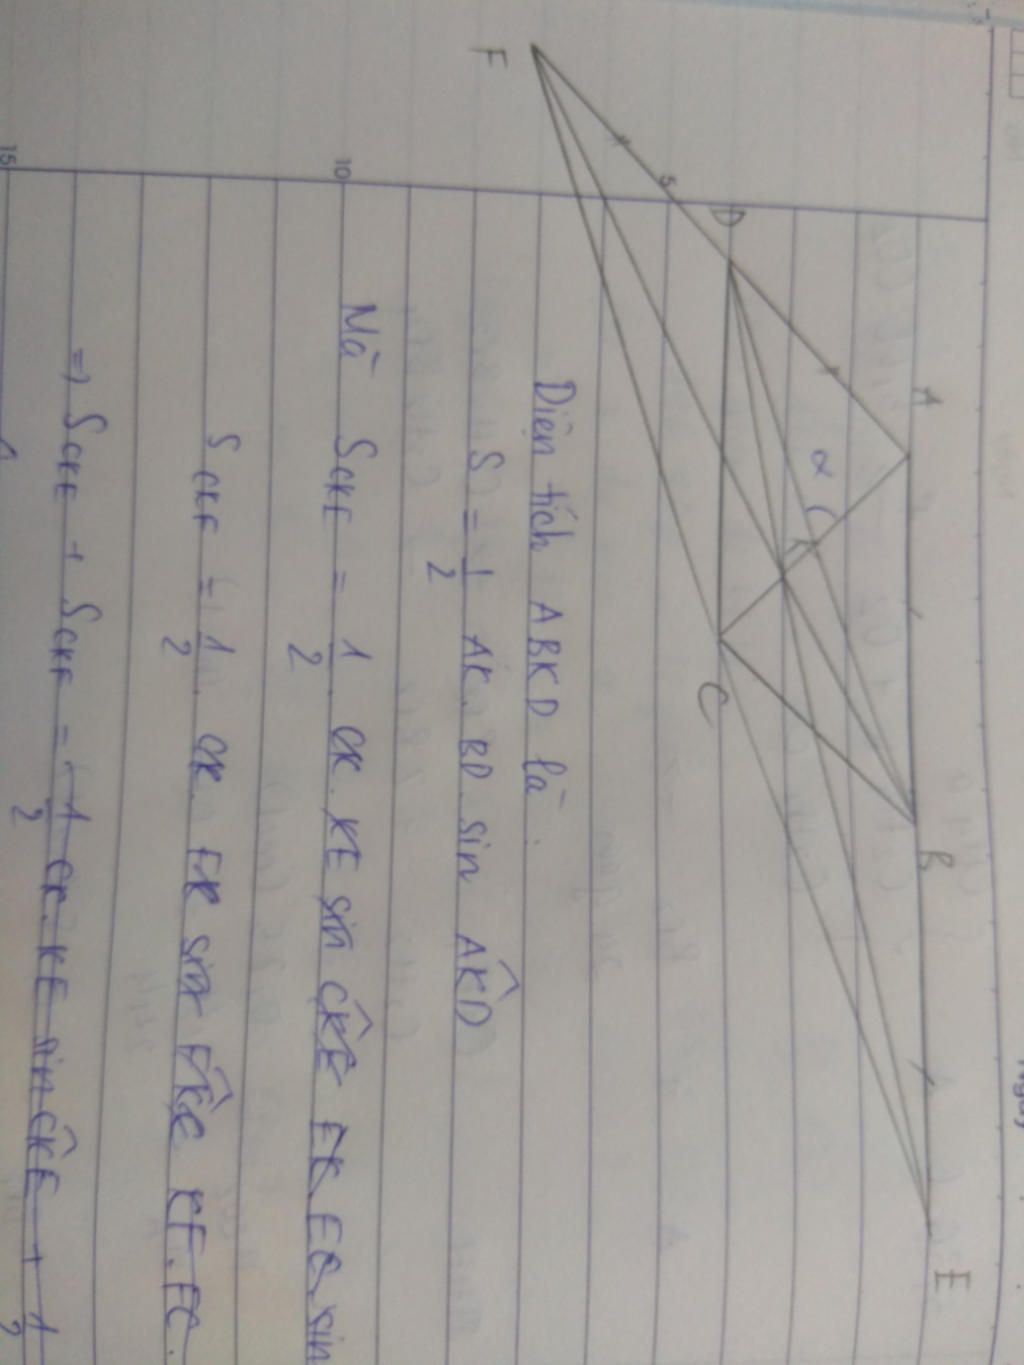 A
B
E
D
α
K
C
F
5
Diện tích ABKD là:
S = 1/2 AK. BD. sin AK̂D
10
Mà SCKE = 1/2. CK. KE sin CK̂E EK. EC. sin
SCKF = 1/2. CK. FK sin FK̂C KF. FC.
=> SCKE + SCKF = 1/2 CK. KE sin CK̂E + 1/2
15